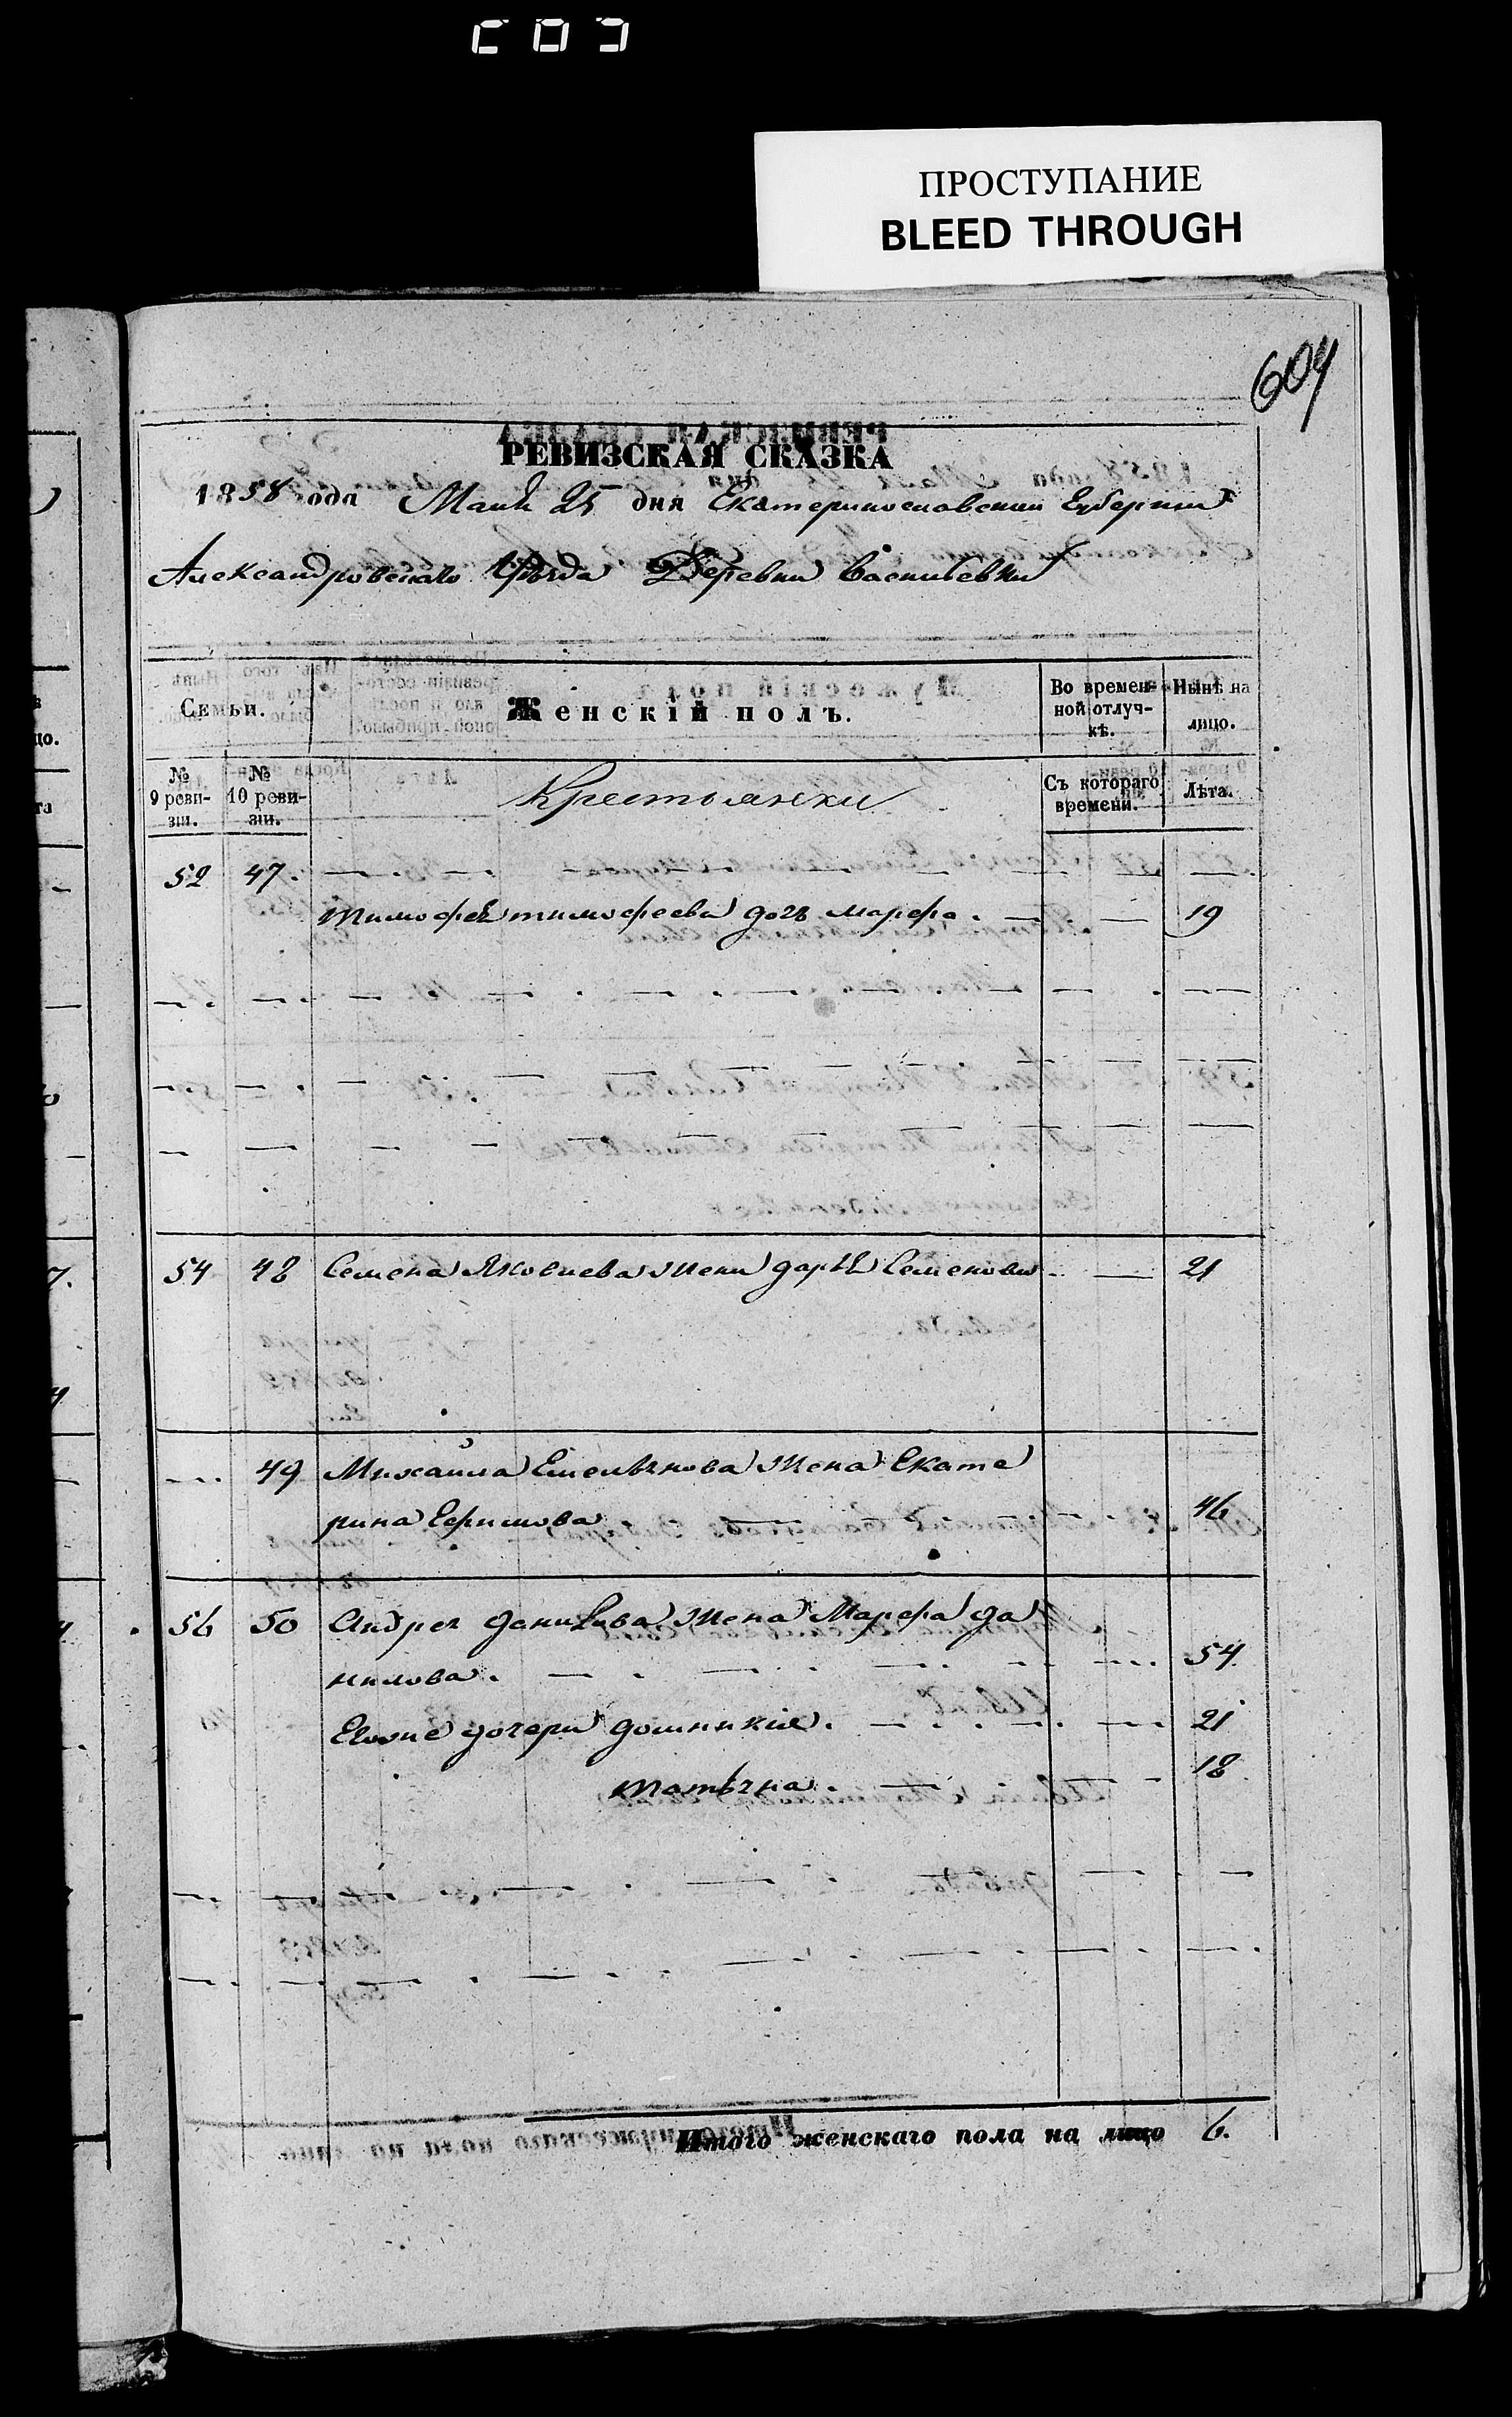 ПРОСТУПАНИЕ
BLEED THROUGH
604
РЕВИЗСКАЯ СКАЗКА
1858 года Маия 25 дня Екатеринославской Губернии
Александровскаго Уѣзда Деревни Васильевки
Семьи.
Женскій полъ.
Во времен-
ной отлуч-
кѣ.
Нынѣ на
лицо.
№
9 реви-
зіи.
№
10 реви-
зіи.
Крестьянки
Съ котораго
времени.
Лѣта.
52 47.
Тимофея тимофеева дочь марфа. 19
54 48 Семена Яковлева жена дарья Семенова 21
49 Михаила Емельянова жена Екате
рина Ефимова 46
56 50 Андрея данилова жена Марфа да
нилова. 54
Евоые дочери домникия. 21
татьяна. 18
Итого женскаго пола на лицо 6.